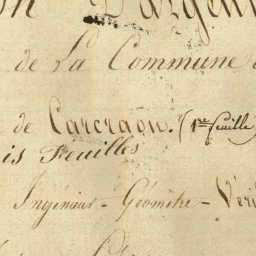 on D'Argen
de La Commune
de Carcraon. (1re feuille)
is Feuilles
Ingénieur - Géomètre - Véri